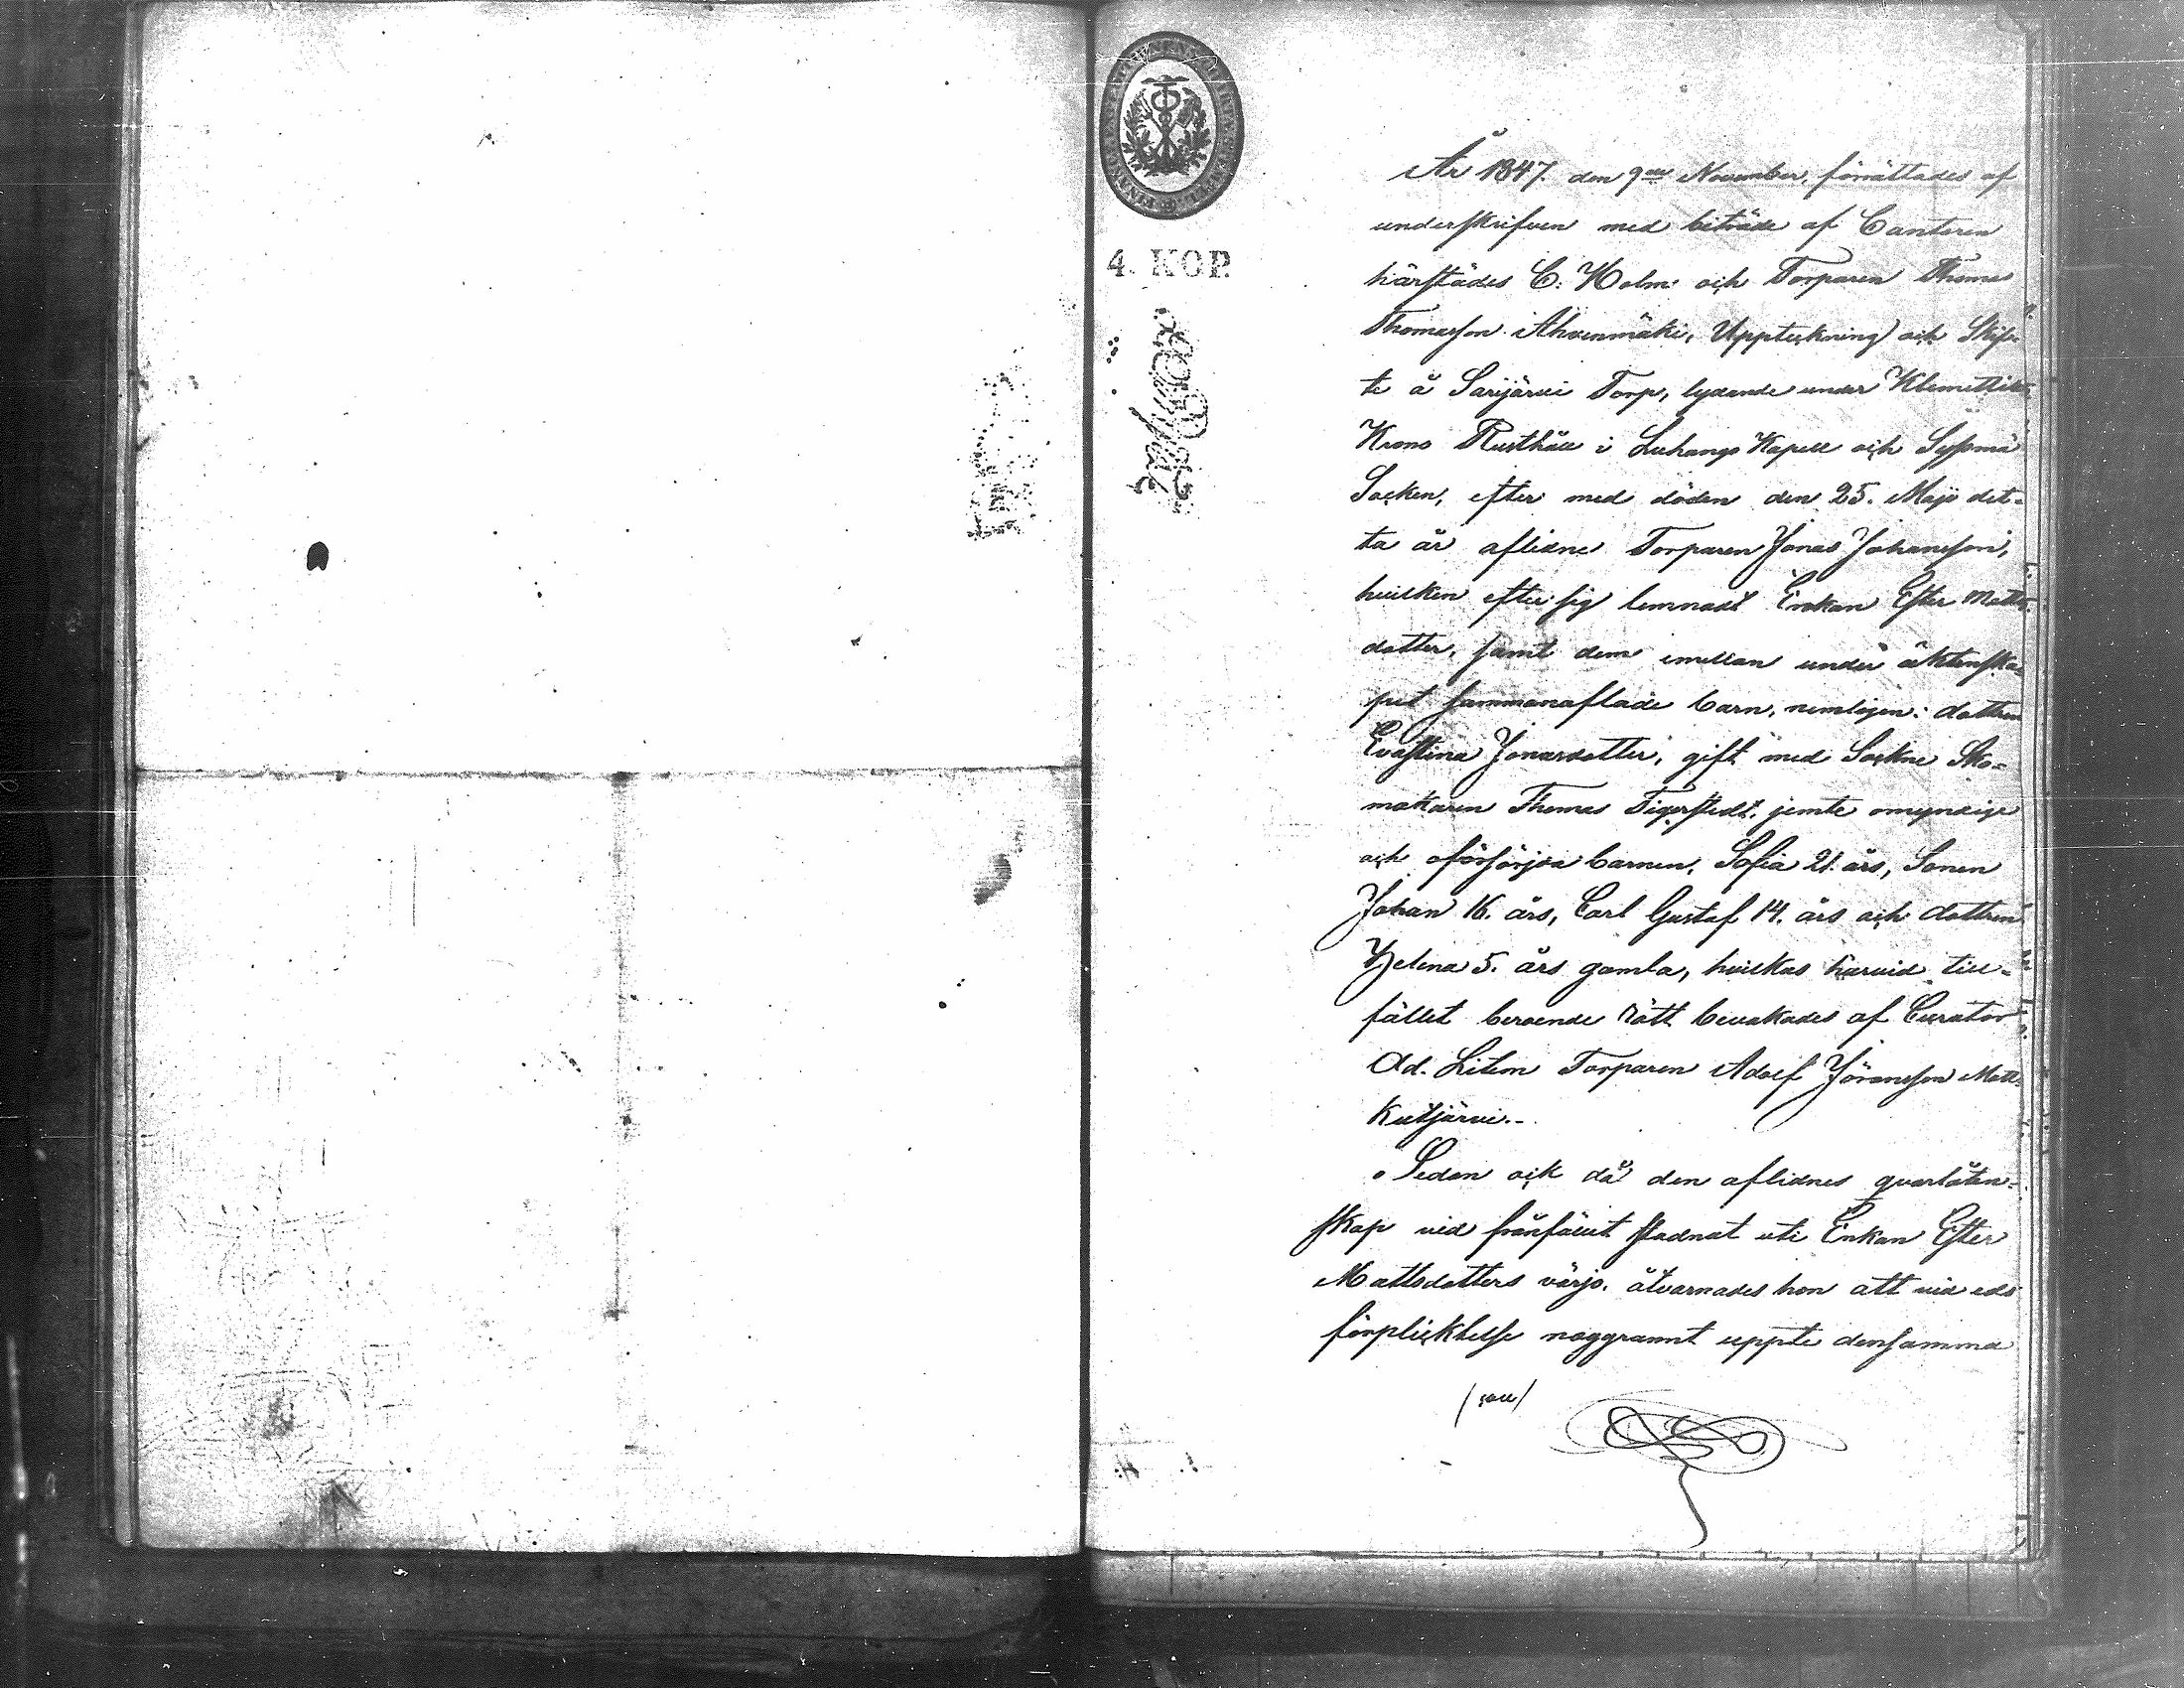 4. KOP.
År 1847. den 9de November, förrättades af
underskrifven med biträde af Cantoren
härstädes C. Holm och Torparen Thomas
Thomasson Ahvenmäki, Uppteckning och Skif-
te å Sarijärvi Torp, lydande under Klemettilä
Krono Rusthåll i Luhango Kapell och Sysmä
Socken, efter med döden den 25. Maji det-
ta år aflidne Torparen Jonas Johansson,
hvilken efter sig lemnadt Enkan Ester Matts-
dotter, samt dem emellan under äktenska-
pet sammanaflade barn, nemligen: dottren
Evastina Jonasdotter, gift med Sockne Sko-
makaren Thomas Tigerstedt, jemte omyndige
och oförsörjda barnen, Sofia 21. års, Sonen
Johan 16. års, Carl Gustaf 14. års och dottren
Helena 5. års gamla, hvilkas härvid till-
fället beroende rätt bevakades af Curator
Ad. Litem Torparen Adolf Jöransson
kutjärvi.-
Sedan och då den aflidnes qvarlåten-
skap vid frånfället stadnat uti Enkan Ester
Mattsdotters värjo, åtvarnades hon att vid eds
förplicktelse noggrannt uppte densamma